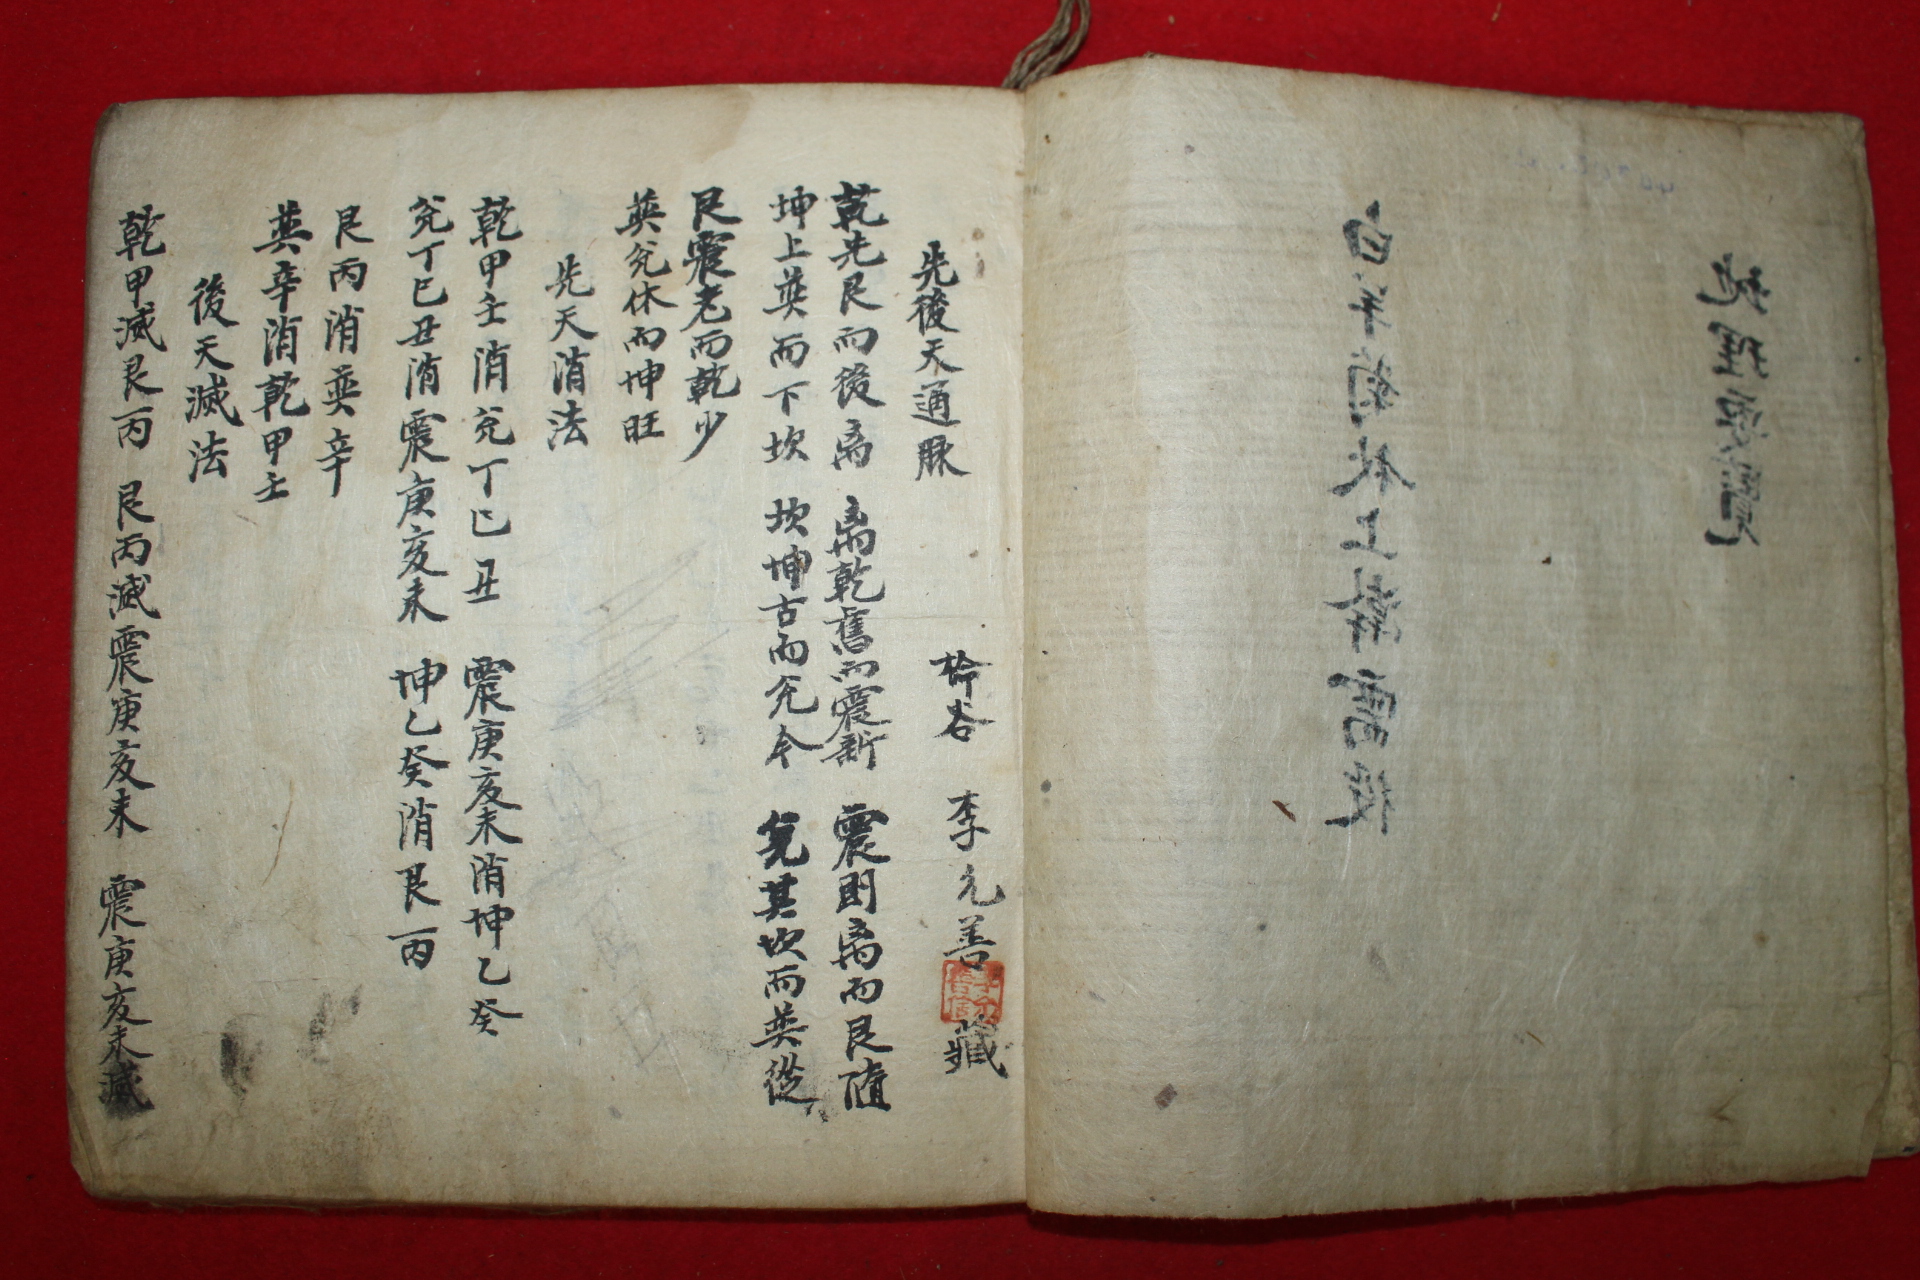 地理要覽
白羊菊秋上
先後天通脉 谷 李元善 藏
乾先艮而後离 离乾舊而震新 震則离而艮隨
坤上巽而下坎 坎坤古而兌今 兌其坎而巽從
艮震老而乾少
巽兌休而坤旺
先天消法
乾甲壬消兌丁巳丑 震庚亥未消坤乙癸
兌丁巳丑消震庚亥未 坤乙癸消艮丙
艮丙消巽辛
巽辛消乾甲壬
後天滅法
乾甲滅艮丙 艮丙滅震庚亥未 震庚亥未滅